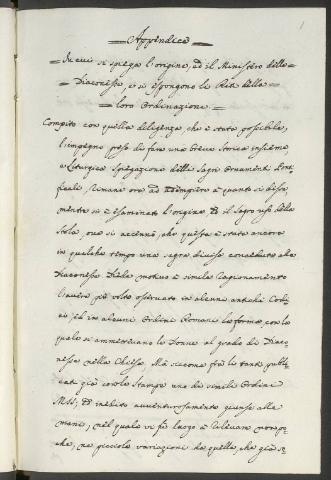 1
Appendice
In cui si spiega l'origine, ed il Ministero delle
Diaconesse, e si espongono li Riti della
loro Ordinazione.
Compito con quella diligenza, che è stata possibile,
l'impegno preso di fare una breve Storica insieme,
e Liturgica Spiegazione delle Sagre Ornamenti Pont-
ficali, rimane ora ad adempiere a quanto si disse
mentre si è esaminata l'origine, ed il sagro uso della
Stola, ove si accennò, che questa è stata ancora
in qualche tempo una sagra divisa conceduta alle
Diaconesse. Diede motivo a simile ragionamento
l'avere più volte osservato in alcuni antichi Codi-
ci, ed in alcuni Ordini Romani la forma, con la
quale si ammettevano le Donne al grado di Diaco-
nessa nella Chiesa. Mà siccome frà li tanti, publi-
cati già con le Stampe uno di simili Ordini
MSS, ed inedito avventurosamente giunse alle
mani, nel quale vi fù luogo a rilevare non po-
che, ne piccole variazioni da quelle, che già si